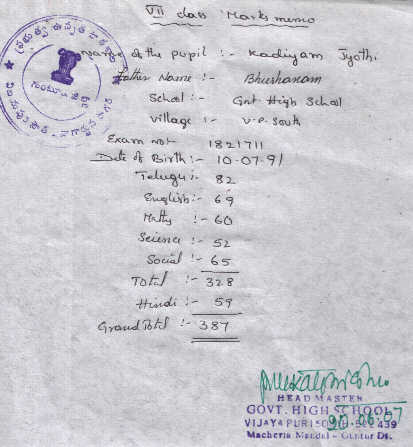 VII class Marks memo
Name of the pupil :- Kadiyam Jyothi.
Father Name :- Bhushanam
School :- Gnt High School
Village :- V.P. South
Exam no :- 1821711
Date of Birth :- 10-07-91
Telugu :- 82
English :- 69
Maths :- 60
Science :- 52
Social :- 65
Total :- 328
Hindi :- 59
Grand Total :- 387
20.06.07
HEAD MASTER
GOVT. HIGH SCHOOL
VIJAYAPURI SOUTH 439
Macherla Mandal - Guntur Dt.